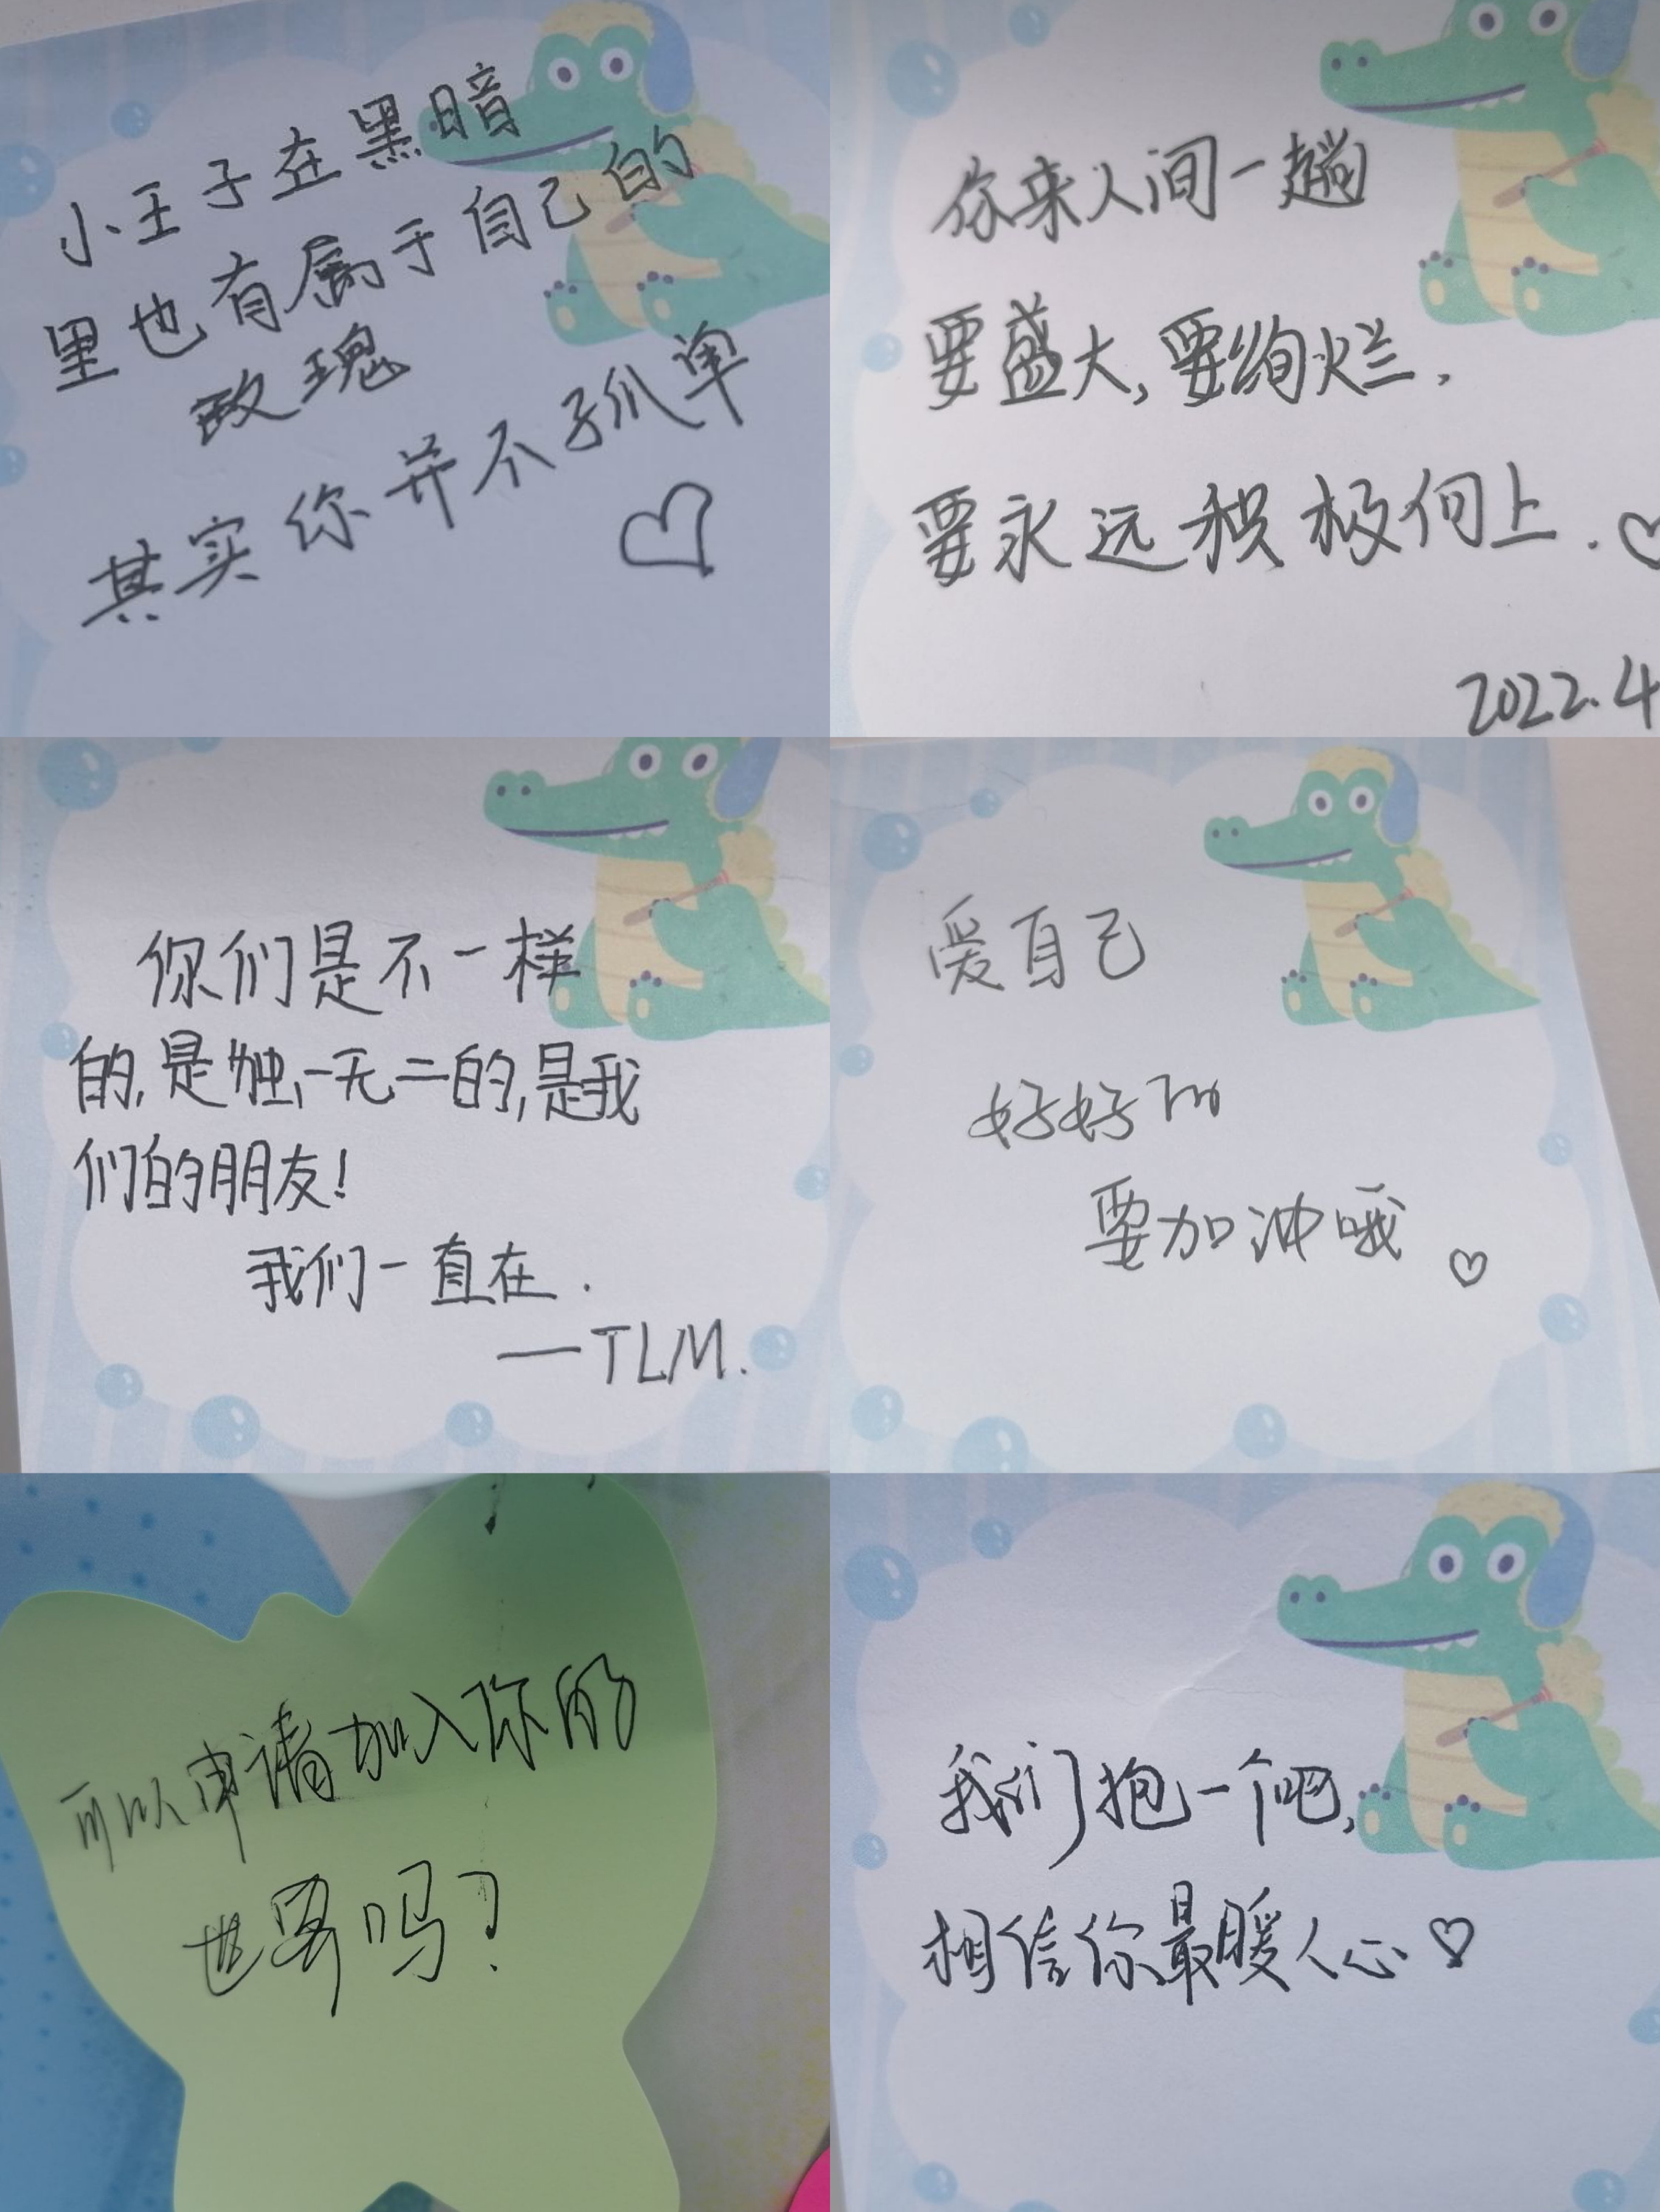 小王子在黑暗
里也有属于自己的
玫瑰
其实你并不孤单
你来人间一趟
要盛大,要绚烂,
要永远积极向上.
2022.4
你们是不一样
的,是独一无二的,是我
们的朋友!
我们一直在.
—TLM.
爱自己
好好
要加油哦
可以申请加入你的
世界吗?
我们抱一个吧,
相信你最暖人心